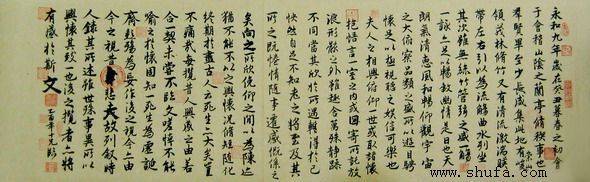 永和九年歲在癸丑暮春之初會
于會稽山陰之蘭亭脩稧事也
群賢畢至少長咸集此地有崇山
峻領茂林脩竹又有清流激湍暎
帶左右引以為流觴曲水列坐
其次雖無絲竹管弦之盛一觴
一詠亦足以暢敘幽情是日也天
朗氣清惠風和暢仰觀宇宙
之大俯察品類之盛所以遊目騁
懷足以極視聽之娛信可樂也
夫人之相與俯仰一世或取諸懷
抱悟言一室之內或因寄所託放
浪形骸之外雖趣舍萬殊靜躁
不同當其欣於所遇暫得於己
快然自足不知老之將至及其
所之既惓情隨事遷感慨係之
矣向之所欣俛仰之間以為陳迹
猶不能不以之興懷況脩短隨化
終期於盡古人云死生亦大矣豈
不痛哉每攬昔人興感之由若
合一契未嘗不臨文嗟悼不能
喻之於懷固知一死生為虛誕
齊彭殤為妄作後之視今亦由
今之視昔悲夫故列敘時
人錄其所述雖世殊事異所以
興懷其致一也後之攬者亦將
有感於斯文
www.shufa.com